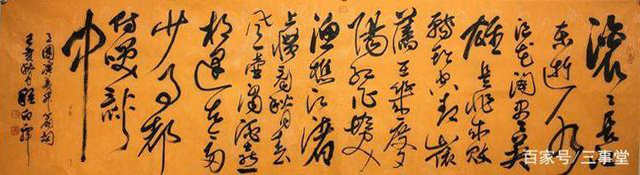 滚〻長江
东逝水
浪花淘尽英
雄是非成败
转头空青山依
舊在几度夕
陽红白发
渔樵江渚
上惯看秋月春
风一壶浊酒喜
相逢古今多
少事都
付笑谈
中
三国演义开篇词
百家号/三事堂